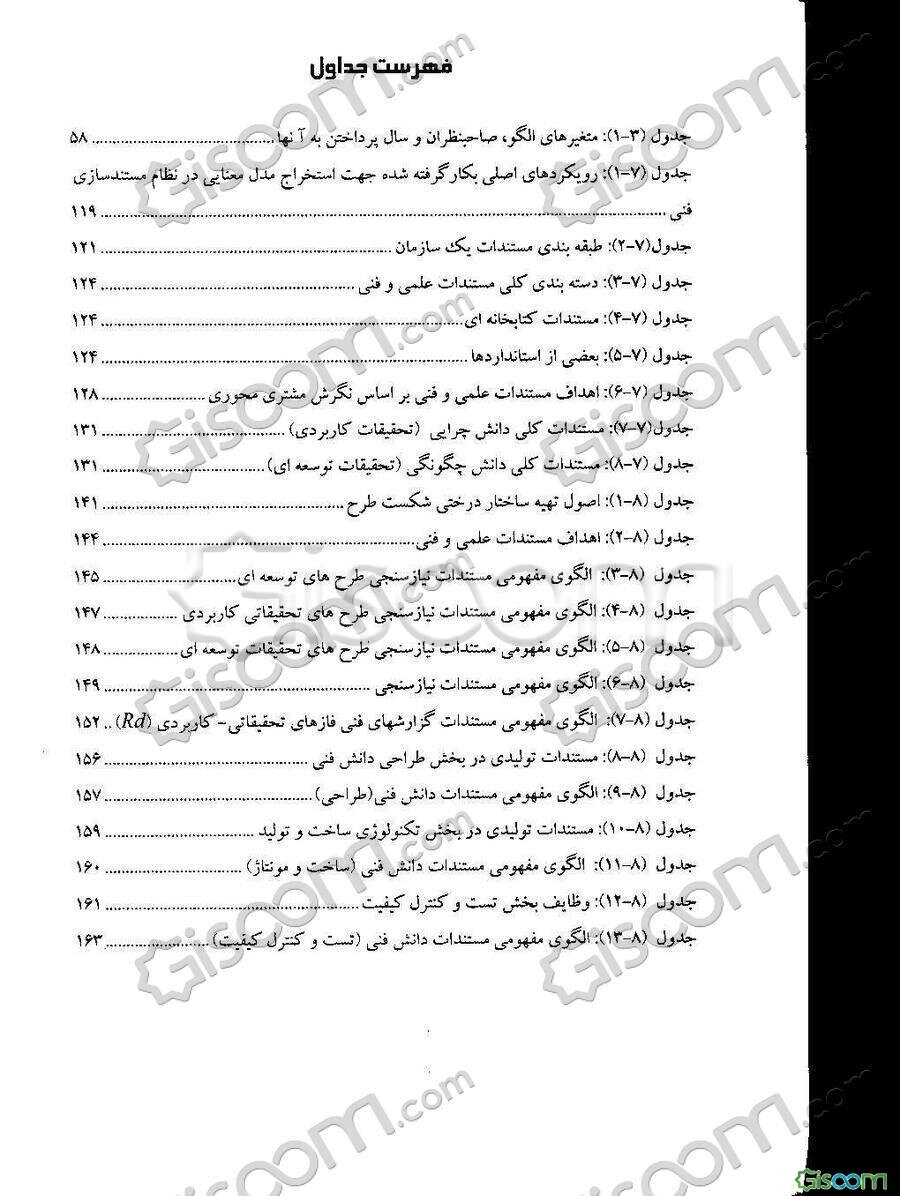 فهرست جداول
جدول (۳-۱): متغیرهای الگو، صاحبنظران و سال پرداختن به آ نها ........ ۵۸
جدول (۷-۱): رویکردهای اصلی بکارگرفته شده جهت استخراج مدل معنایی در نظام مستندسازی
فنی ........ ۱۱۹
جدول(۷-۲): طبقه بندی مستندات یک سازمان ........ ۱۲۱
جدول (۷-۳): دسته بندی کلی مستندات علمی و فنی ........ ۱۲۴
جدول (۷-۴): مستندات کتابخانه ای ........ ۱۲۴
جدول (۷-۵): بعضی از استانداردها ........ ۱۲۴
جدول (۷-۶): اهداف مستندات علمی و فنی بر اساس نگرش مشتری محوری ........ ۱۲۸
جدول(۷-۷): مستندات کلی دانش چرایی (تحقیقات کاربردی) ........ ۱۳۱
جدول (۷-۸): مستندات کلی دانش چگونگی (تحقیقات توسعه ای) ........ ۱۳۱
جدول (۸-۱): اصول تهیه ساختار درختی شکست طرح ........ ۱۴۱
جدول (۸-۲): اهداف مستندات علمی و فنی ........ ۱۴۴
جدول (۸-۳): الگوی مفهومی مستندات نیازسنجی طرح های توسعه ای ........ ۱۴۵
جدول (۸-۴): الگوی مفهومی مستندات نیازسنجی طرح های تحقیقاتی کاربردی ........ ۱۴۷
جدول (۸-۵): الگوی مفهومی مستندات نیازسنجی طرح های تحقیقات توسعه ای ........ ۱۴۸
جدول (۸-۶): الگوی مفهومی مستندات نیازسنجی ........ ۱۴۹
جدول (۸-۷): الگوی مفهومی مستندات گزارشهای فنی فازهای تحقیقاتی- کاربردی (Rd) .. ۱۵۲
جدول (۸-۸): مستندات تولیدی در بخش طراحی دانش فنی ........ ۱۵۶
جدول (۸-۹): الگوی مفهومی مستندات دانش فنی(طراحی) ........ ۱۵۷
جدول (۸-۱۰): مستندات تولیدی در بخش تکنولوژی ساخت و تولید ........ ۱۵۹
جدول (۸-۱۱): الگوی مفهومی مستندات دانش فنی (ساخت و مونتاژ) ........ ۱۶۰
جدول (۸-۱۲): وظایف بخش تست و کنترل کیفیت ........ ۱۶۱
جدول (۸-۱۳): الگوی مفهومی مستندات دانش فنی (تست و کنترل کیفیت) ........ ۱۶۳
Giscoom.com
Giscoom